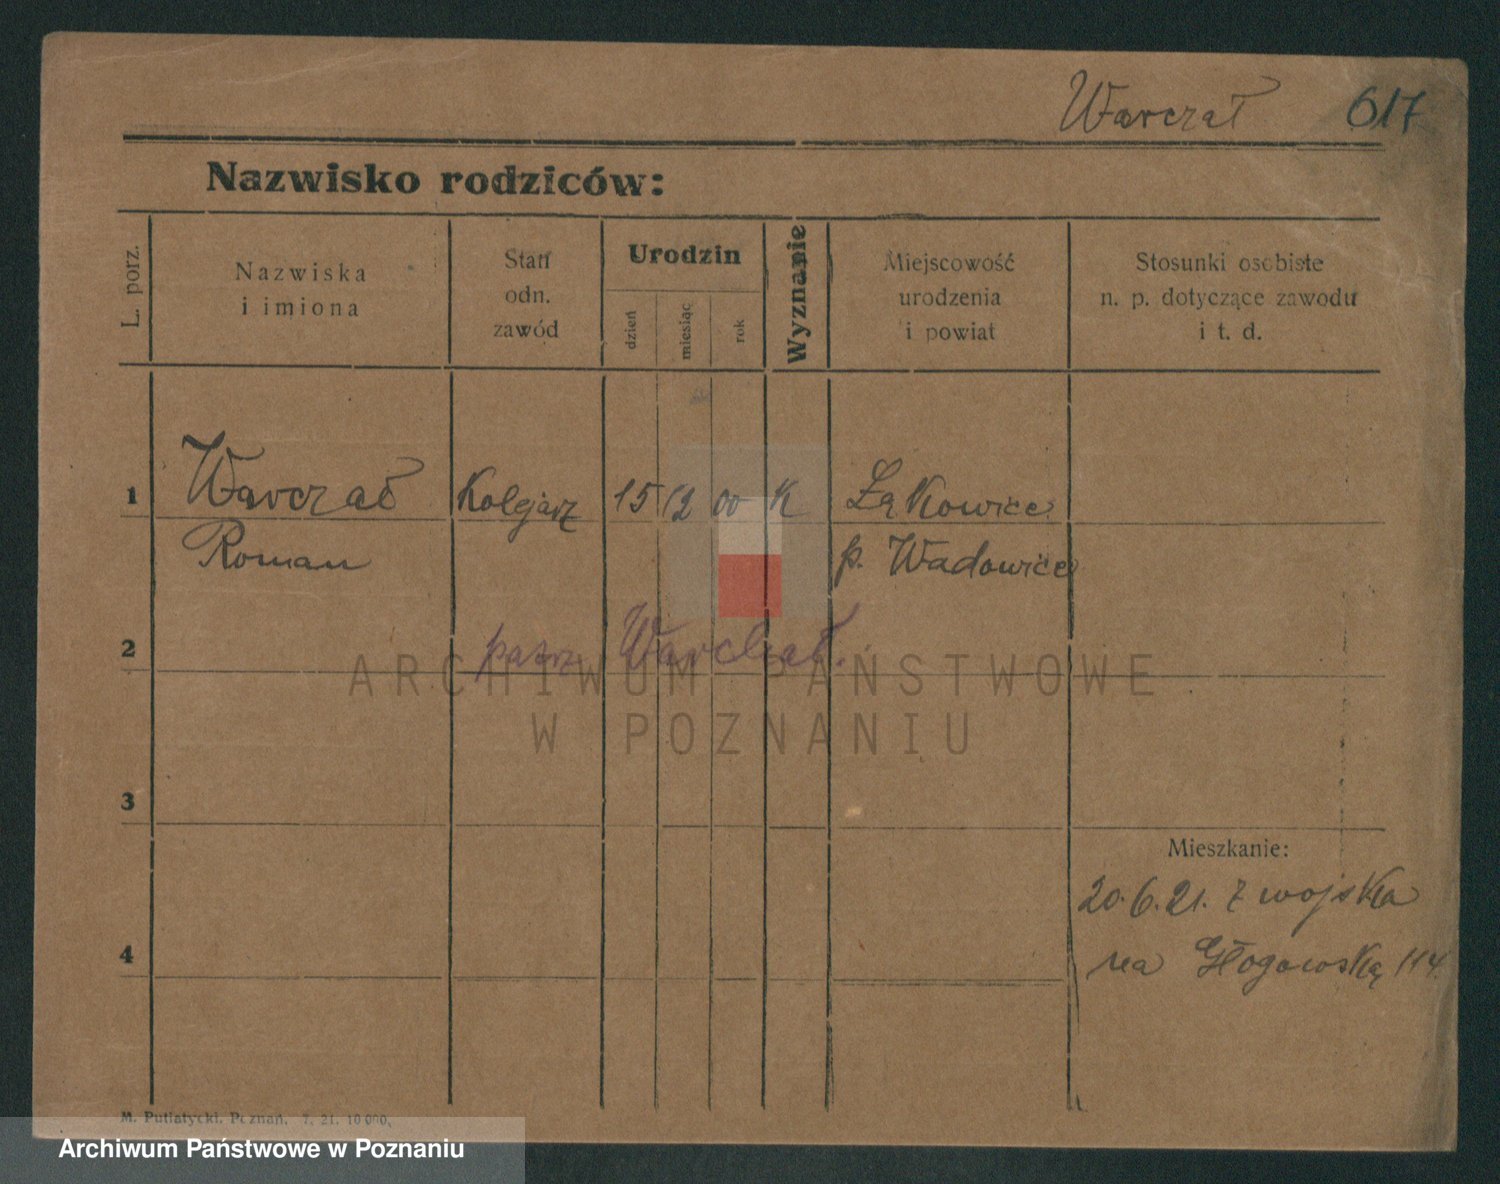 Warczał 617
Nazwisko rodziców:
L. porz.
Nazwiska
i imiona
Stan
odn.
zawód
Urodzin
dzień
miesiąc
rok
Wyznanie
Miejscowość
urodzenia
i powiat
Stosunki osobiste
n. p. dotyczące zawodu
i t. d.
1 Warczał Kolejarz 15 12 00 K Łąkowice
Roman p. Wadowice
2 patrz Warchał.
ARCHIWUM PAŃSTWOWE
W POZNANIU
3
Mieszkanie:
20.6.21. z wojska
4 na Głogowską 114
M. Putiatycki, Poznań. 7. 21. 10 000.
Archiwum Państwowe w Poznaniu